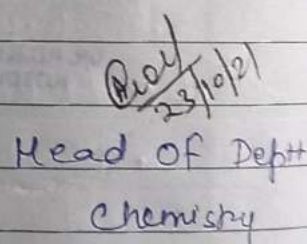 23/10/21
Head Of Deptt
Chemistry